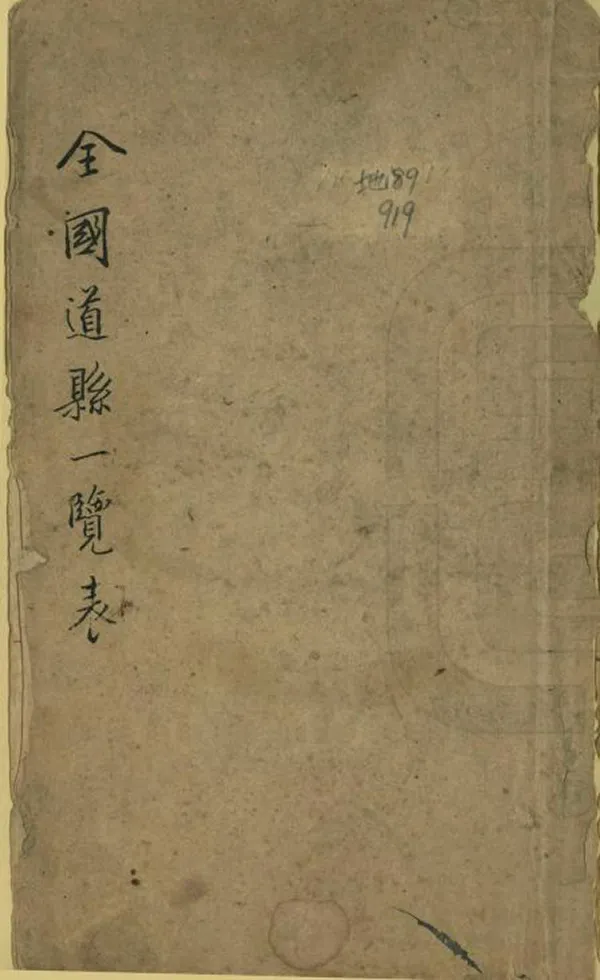 全國道縣一覽表
地89
919